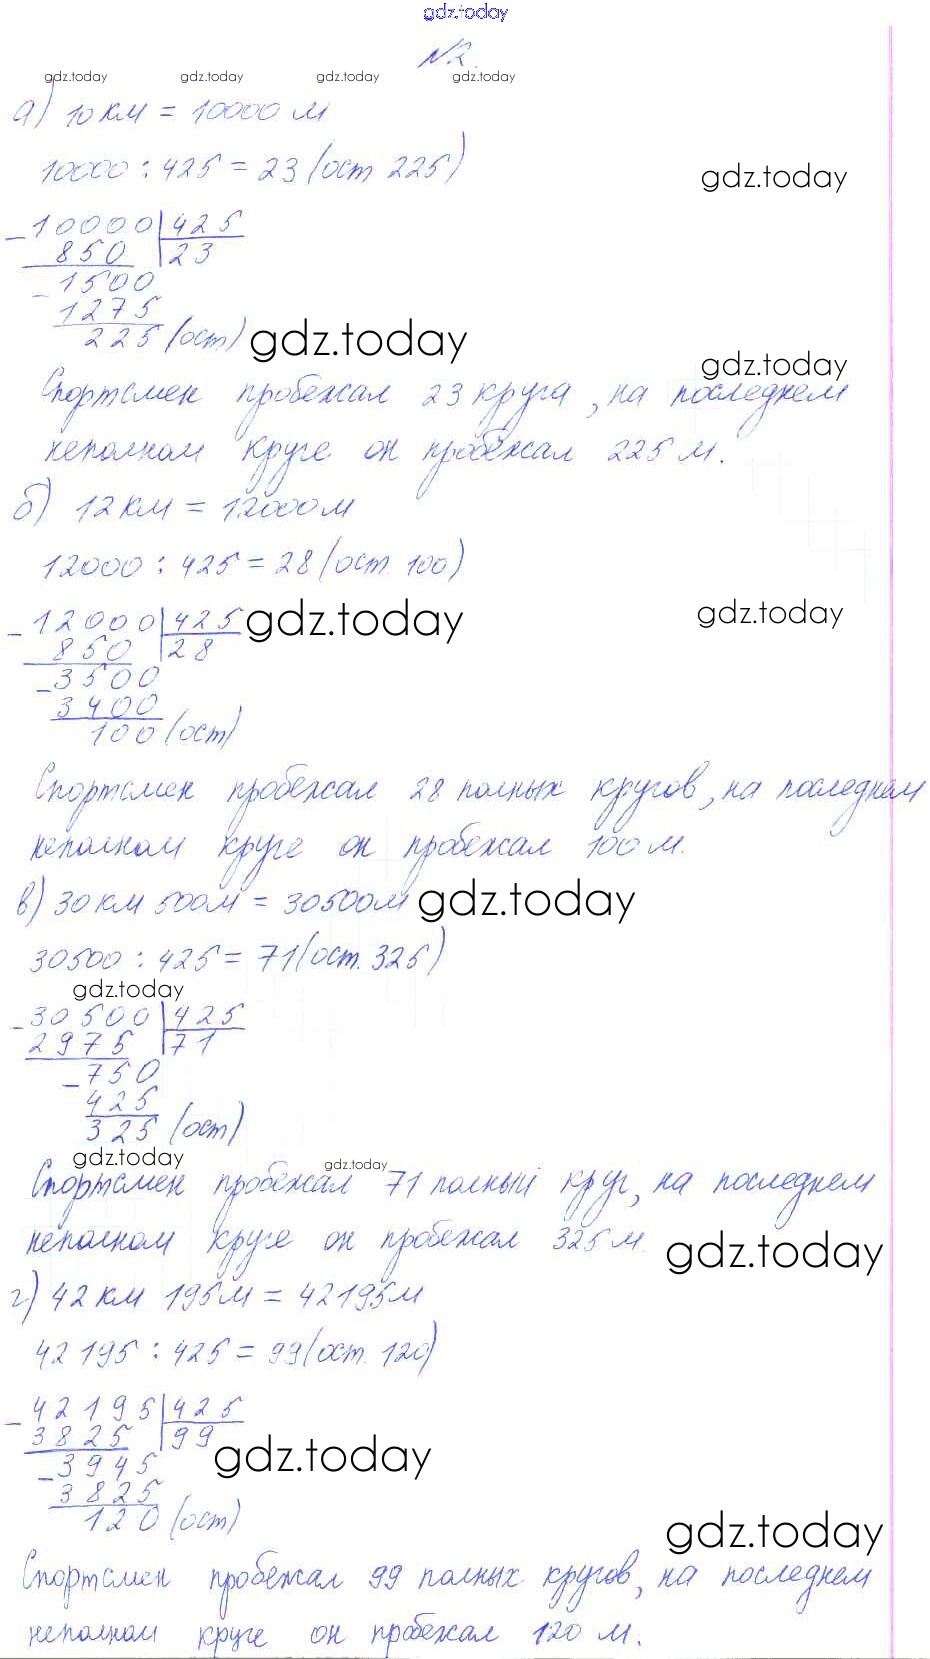 gdz.today
№2.
gdz.today gdz.today gdz.today gdz.today
а) 10 км = 10000 м
10000 : 425 = 23 (ост 225)
gdz.today
- 10000 | 425
850 | 23
- 1500
1275
225 (ост)
gdz.today
gdz.today
Спортсмен пробежал 23 круга, на последнем
неполном круге он пробежал 225 м.
б) 12 км = 12000 м
12000 : 425 = 28 (ост. 100)
- 12000 | 425
gdz.today
gdz.today
850 | 28
- 3500
3400
100 (ост)
Спортсмен пробежал 28 полных кругов, на последнем
неполном круге он пробежал 100 м.
в) 30 км 500 м = 30500 м
gdz.today
30500 : 425 = 71 (ост. 325)
gdz.today
- 30500 | 425
2975 | 71
- 750
425
325 (ост)
gdz.today
gdz.today
Спортсмен пробежал 71 полный круг, на последнем
неполном круге он пробежал 325 м.
gdz.today
г) 42 км 195 м = 42195 м
42195 : 425 = 99 (ост. 120)
- 42195 | 425
3825 | 99
gdz.today
- 3945
3825
120 (ост)
gdz.today
Спортсмен пробежал 99 полных кругов, на последнем
неполном круге он пробежал 120 м.